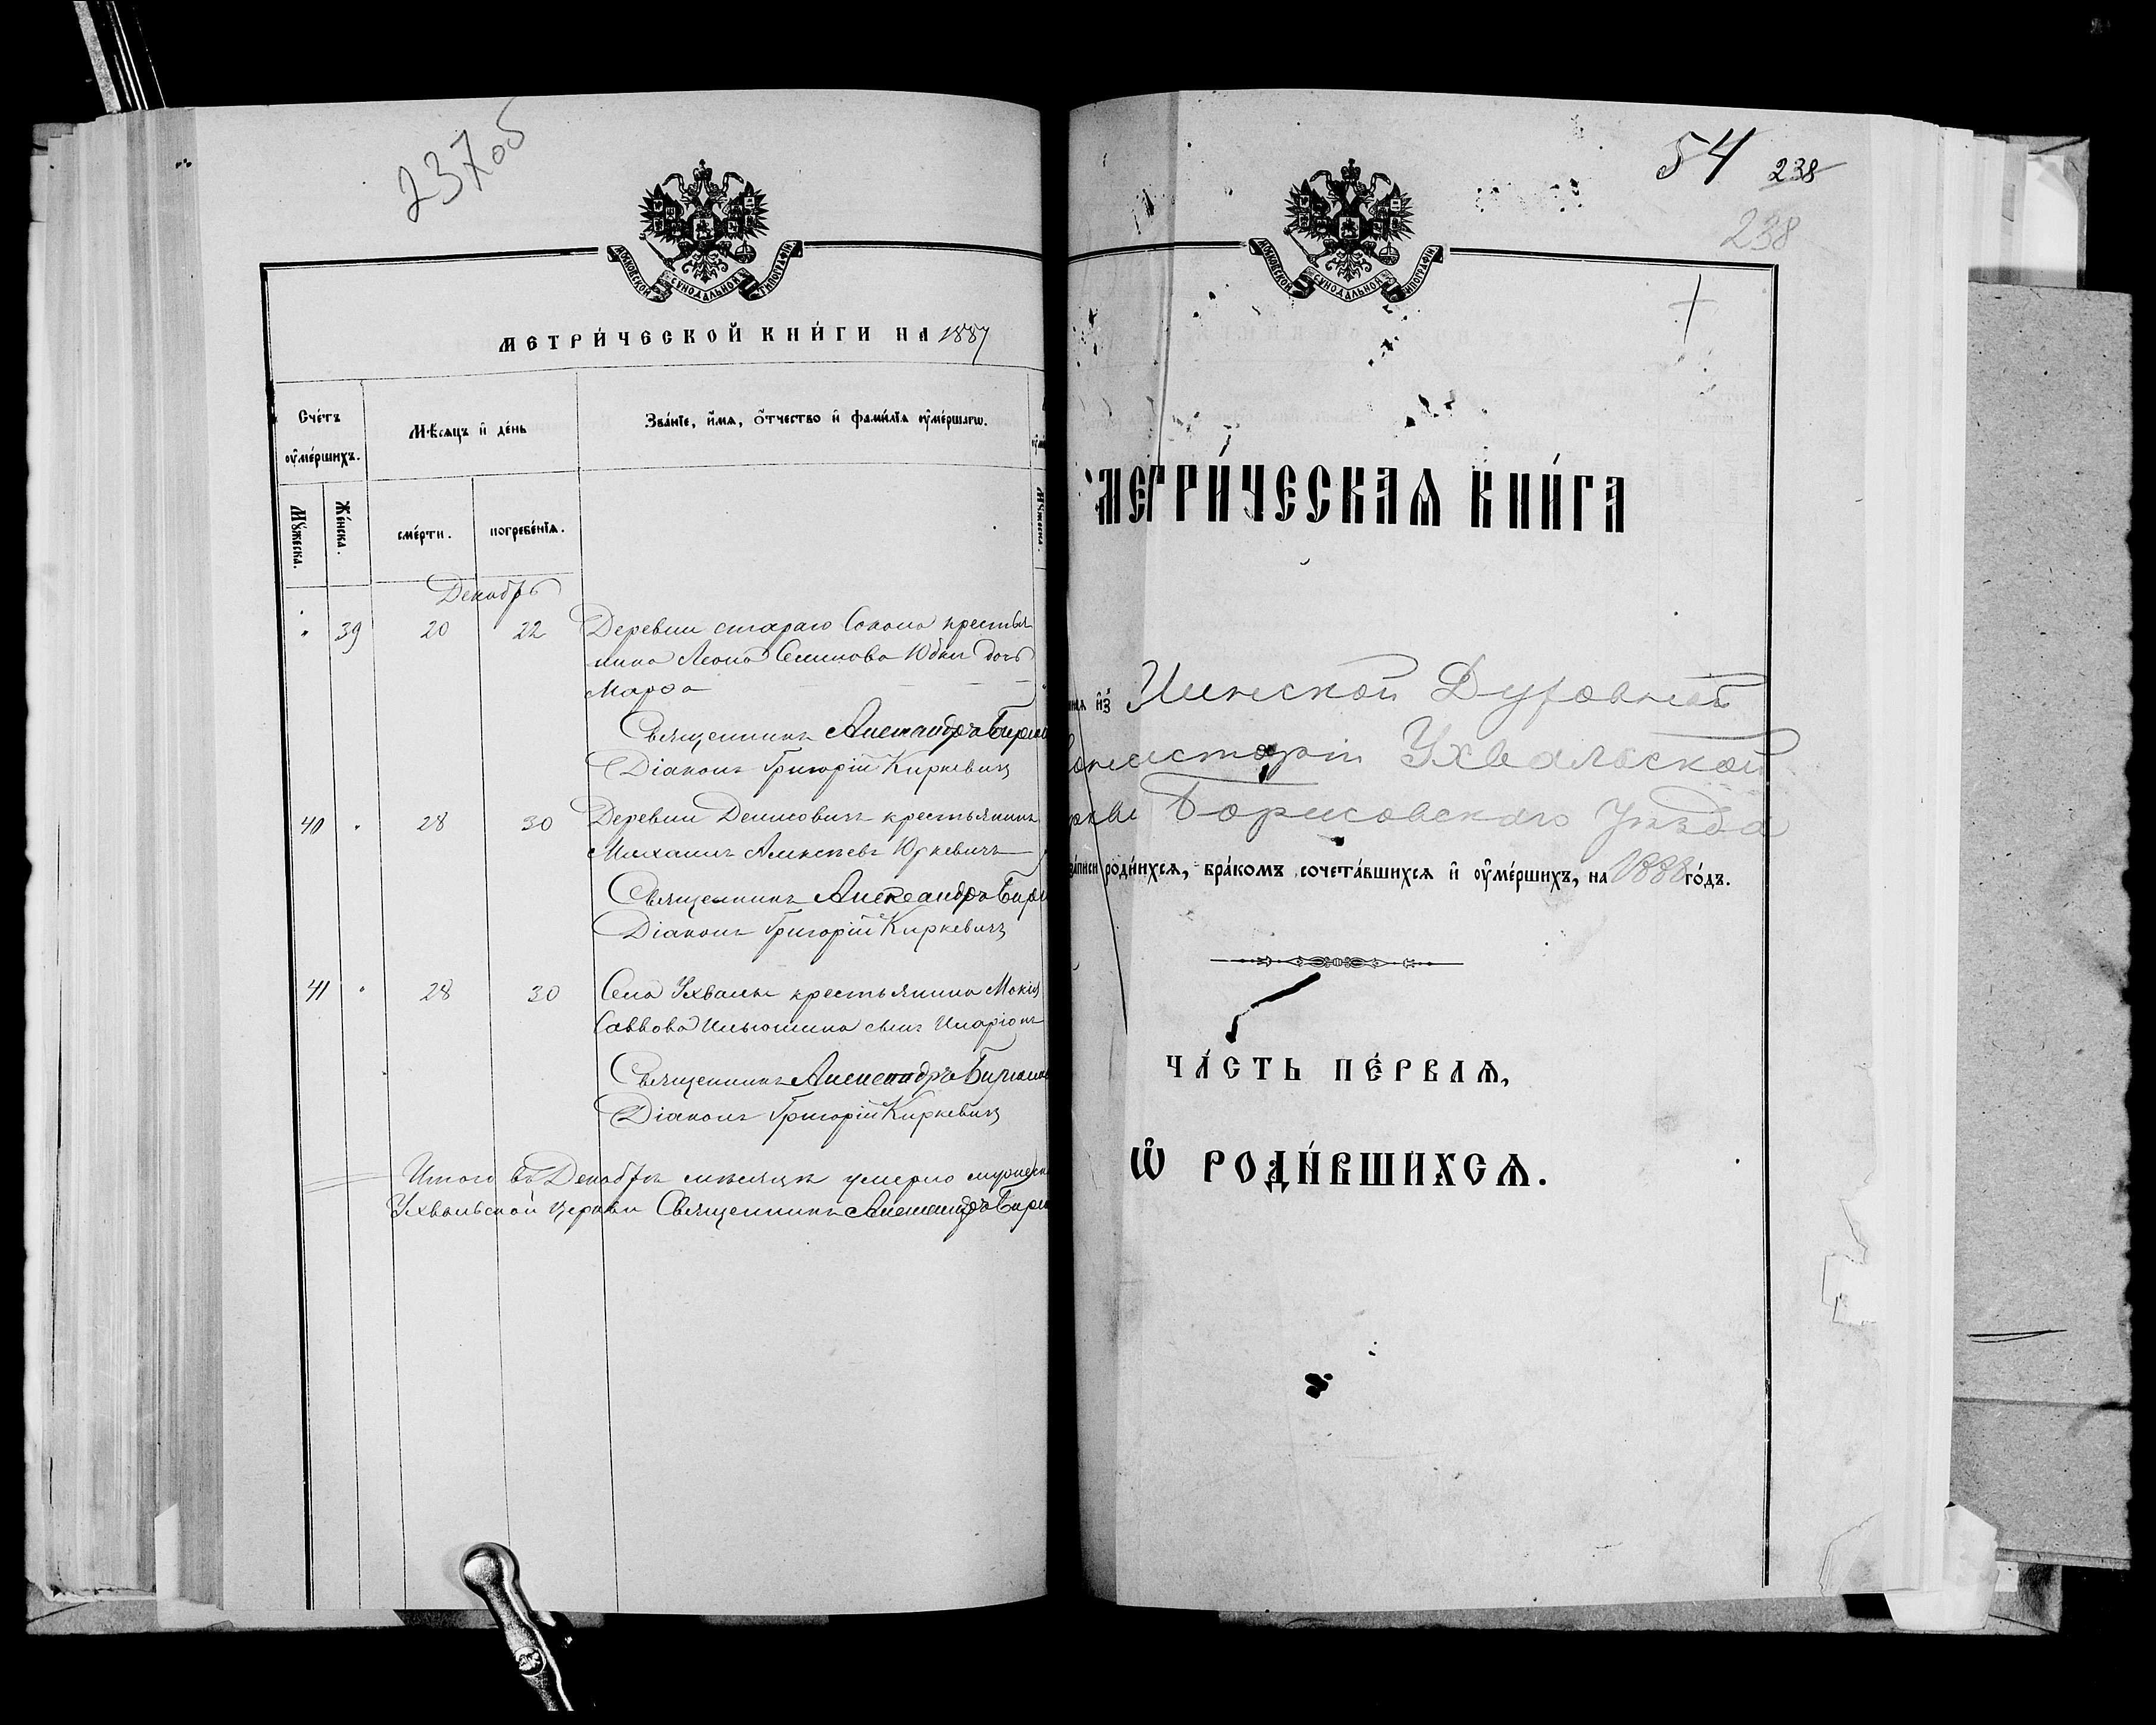 237об
МОСКОВСКОЙ СѴНОДАЛЬНОЙ ТИПОГРАФІИ
МЕТРИ́ЧЕСКОЙ КНИ́ГИ НА 1887
Сче́тъ ᲂу҆ме́ршихъ.
Мѣ́сяцъ и҆ де́нь
Зва́нїе, и҆́мѧ, ѻ҆́тчество и҆ фами́лїѧ ᲂу҆ме́ршагѡ.
Мꙋ́жеска.
Же́нска.
сме́рти.
погребе́нїѧ.
Декабрь
" 39 20 22 Деревни стараго Сокола крестья
нина Леона Семинова Юбки дочь
Марѳа
Священникъ Александръ
Діаконъ Григорій Киркевичъ
40 " 28 30 Деревни Денисовичъ крестьянинъ
Михаилъ Алексѣевъ Юркевичъ
Священникъ Александръ
Діаконъ Григорій Киркевичъ
41 " 28 30 Села Ухвалы крестьянина Мокія
Саввова Ильюшина сынъ Иларіонъ
Священникъ Александръ
Діаконъ Григорій Киркевичъ
Итого въ Декабрѣ мѣсяцѣ умерло мужеск
Ухвальской Церкви Священникъ Александръ
54 238
238
МОСКОВСКОЙ СѴНОДАЛЬНОЙ ТИПОГРАФІИ
МЕТРИ́ЧЕСКАѦ КНИ́ГА
и҆з̾ Минской Духовной
Консисторіи Ухвальской
Борисовскаго Уѣзда
роди́вшихсѧ, бра́комъ сочета́вшихсѧ и҆ ᲂу҆ме́ршихъ, на 1888 го́дъ.
ЧА́СТЬ ПЕ́РВАѦ,
Ѡ҆ РОДИ́ВШИХСѦ.